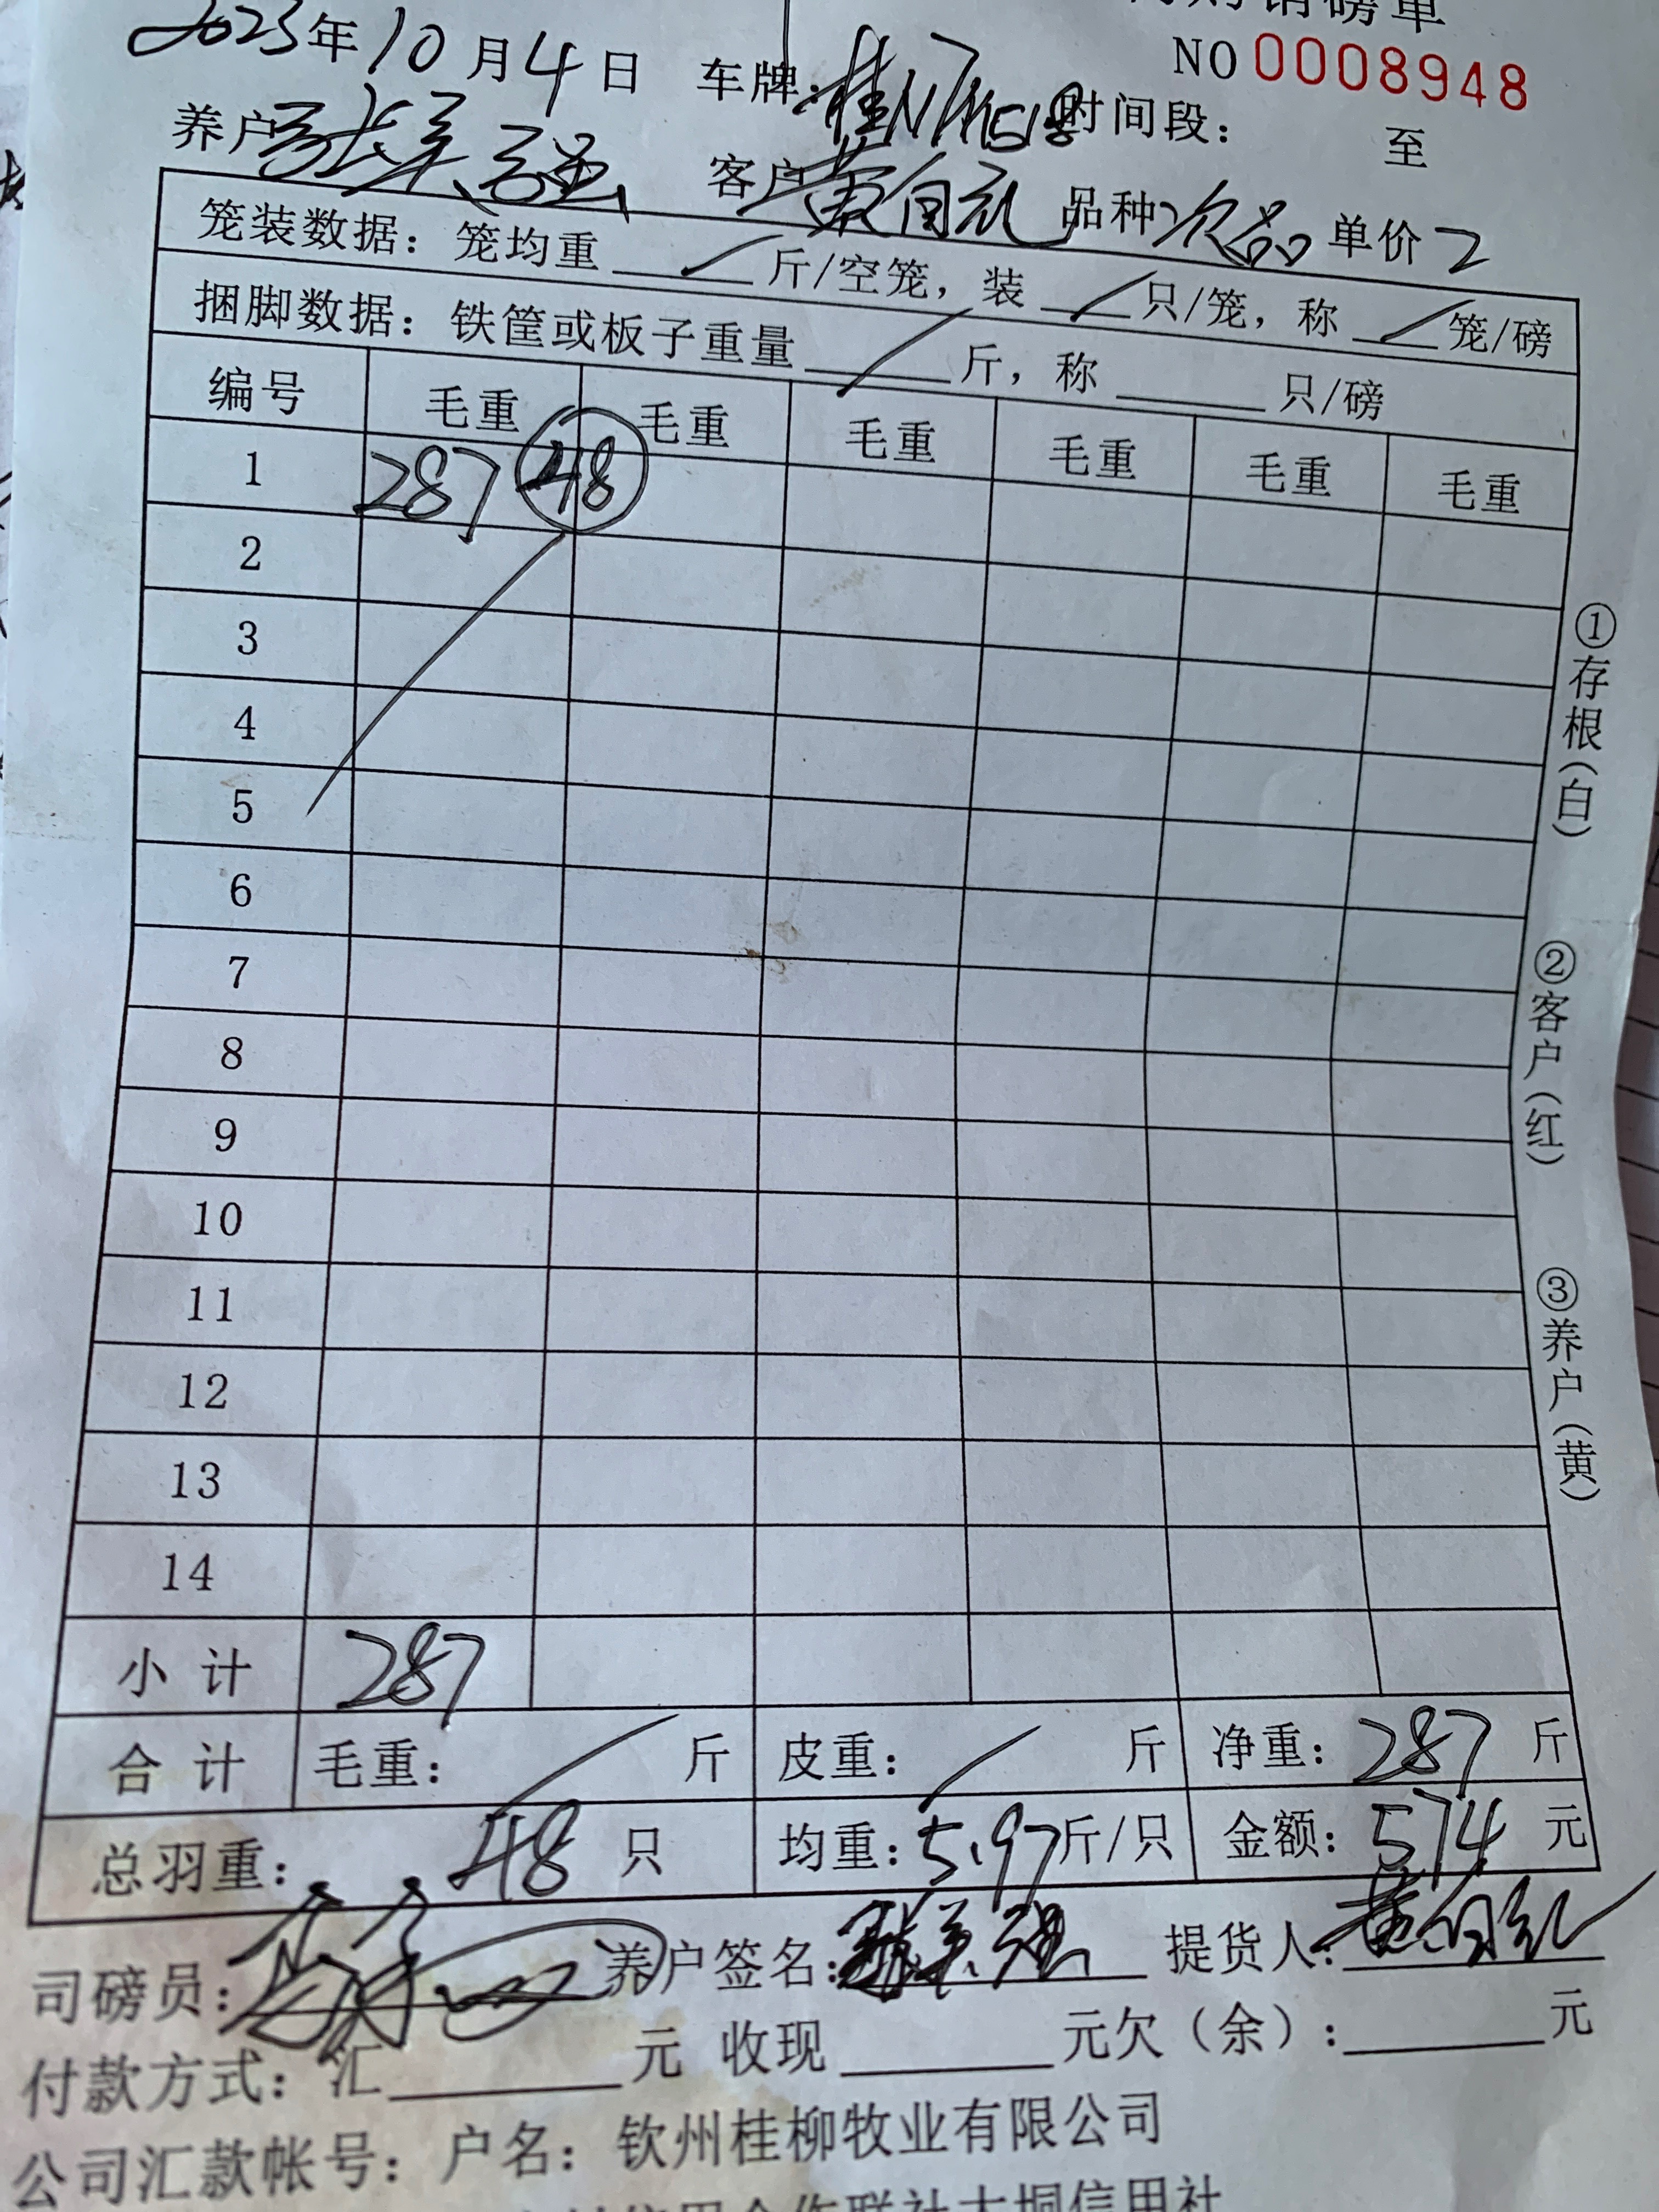 销磅单
NO 0008948
2023年10月4日 车牌：桂N 时间段： 至
养户 客户 黄 品种 次品 单价 2
笼装数据：笼均重 / 斤/空笼，装 / 只/笼，称 / 笼/磅
捆脚数据：铁筐或板子重量 / 斤，称 只/磅
编号 毛重 毛重 毛重 毛重 毛重 毛重
1 287 48
2
3
4
5
6
7
8
9
10
11
12
13
14
小计 287
合计 毛重： / 斤 皮重： / 斤 净重：287 斤
总羽重：48 只 均重：5.97 斤/只 金额：574 元
司磅员： 养户签名： 提货人：黄
付款方式：汇 元 收现 元欠（余）： 元
公司汇款帐号：户名：钦州桂柳牧业有限公司
信用合作联社大垌信用社
①存根（白）
②客户（红）
③养户（黄）